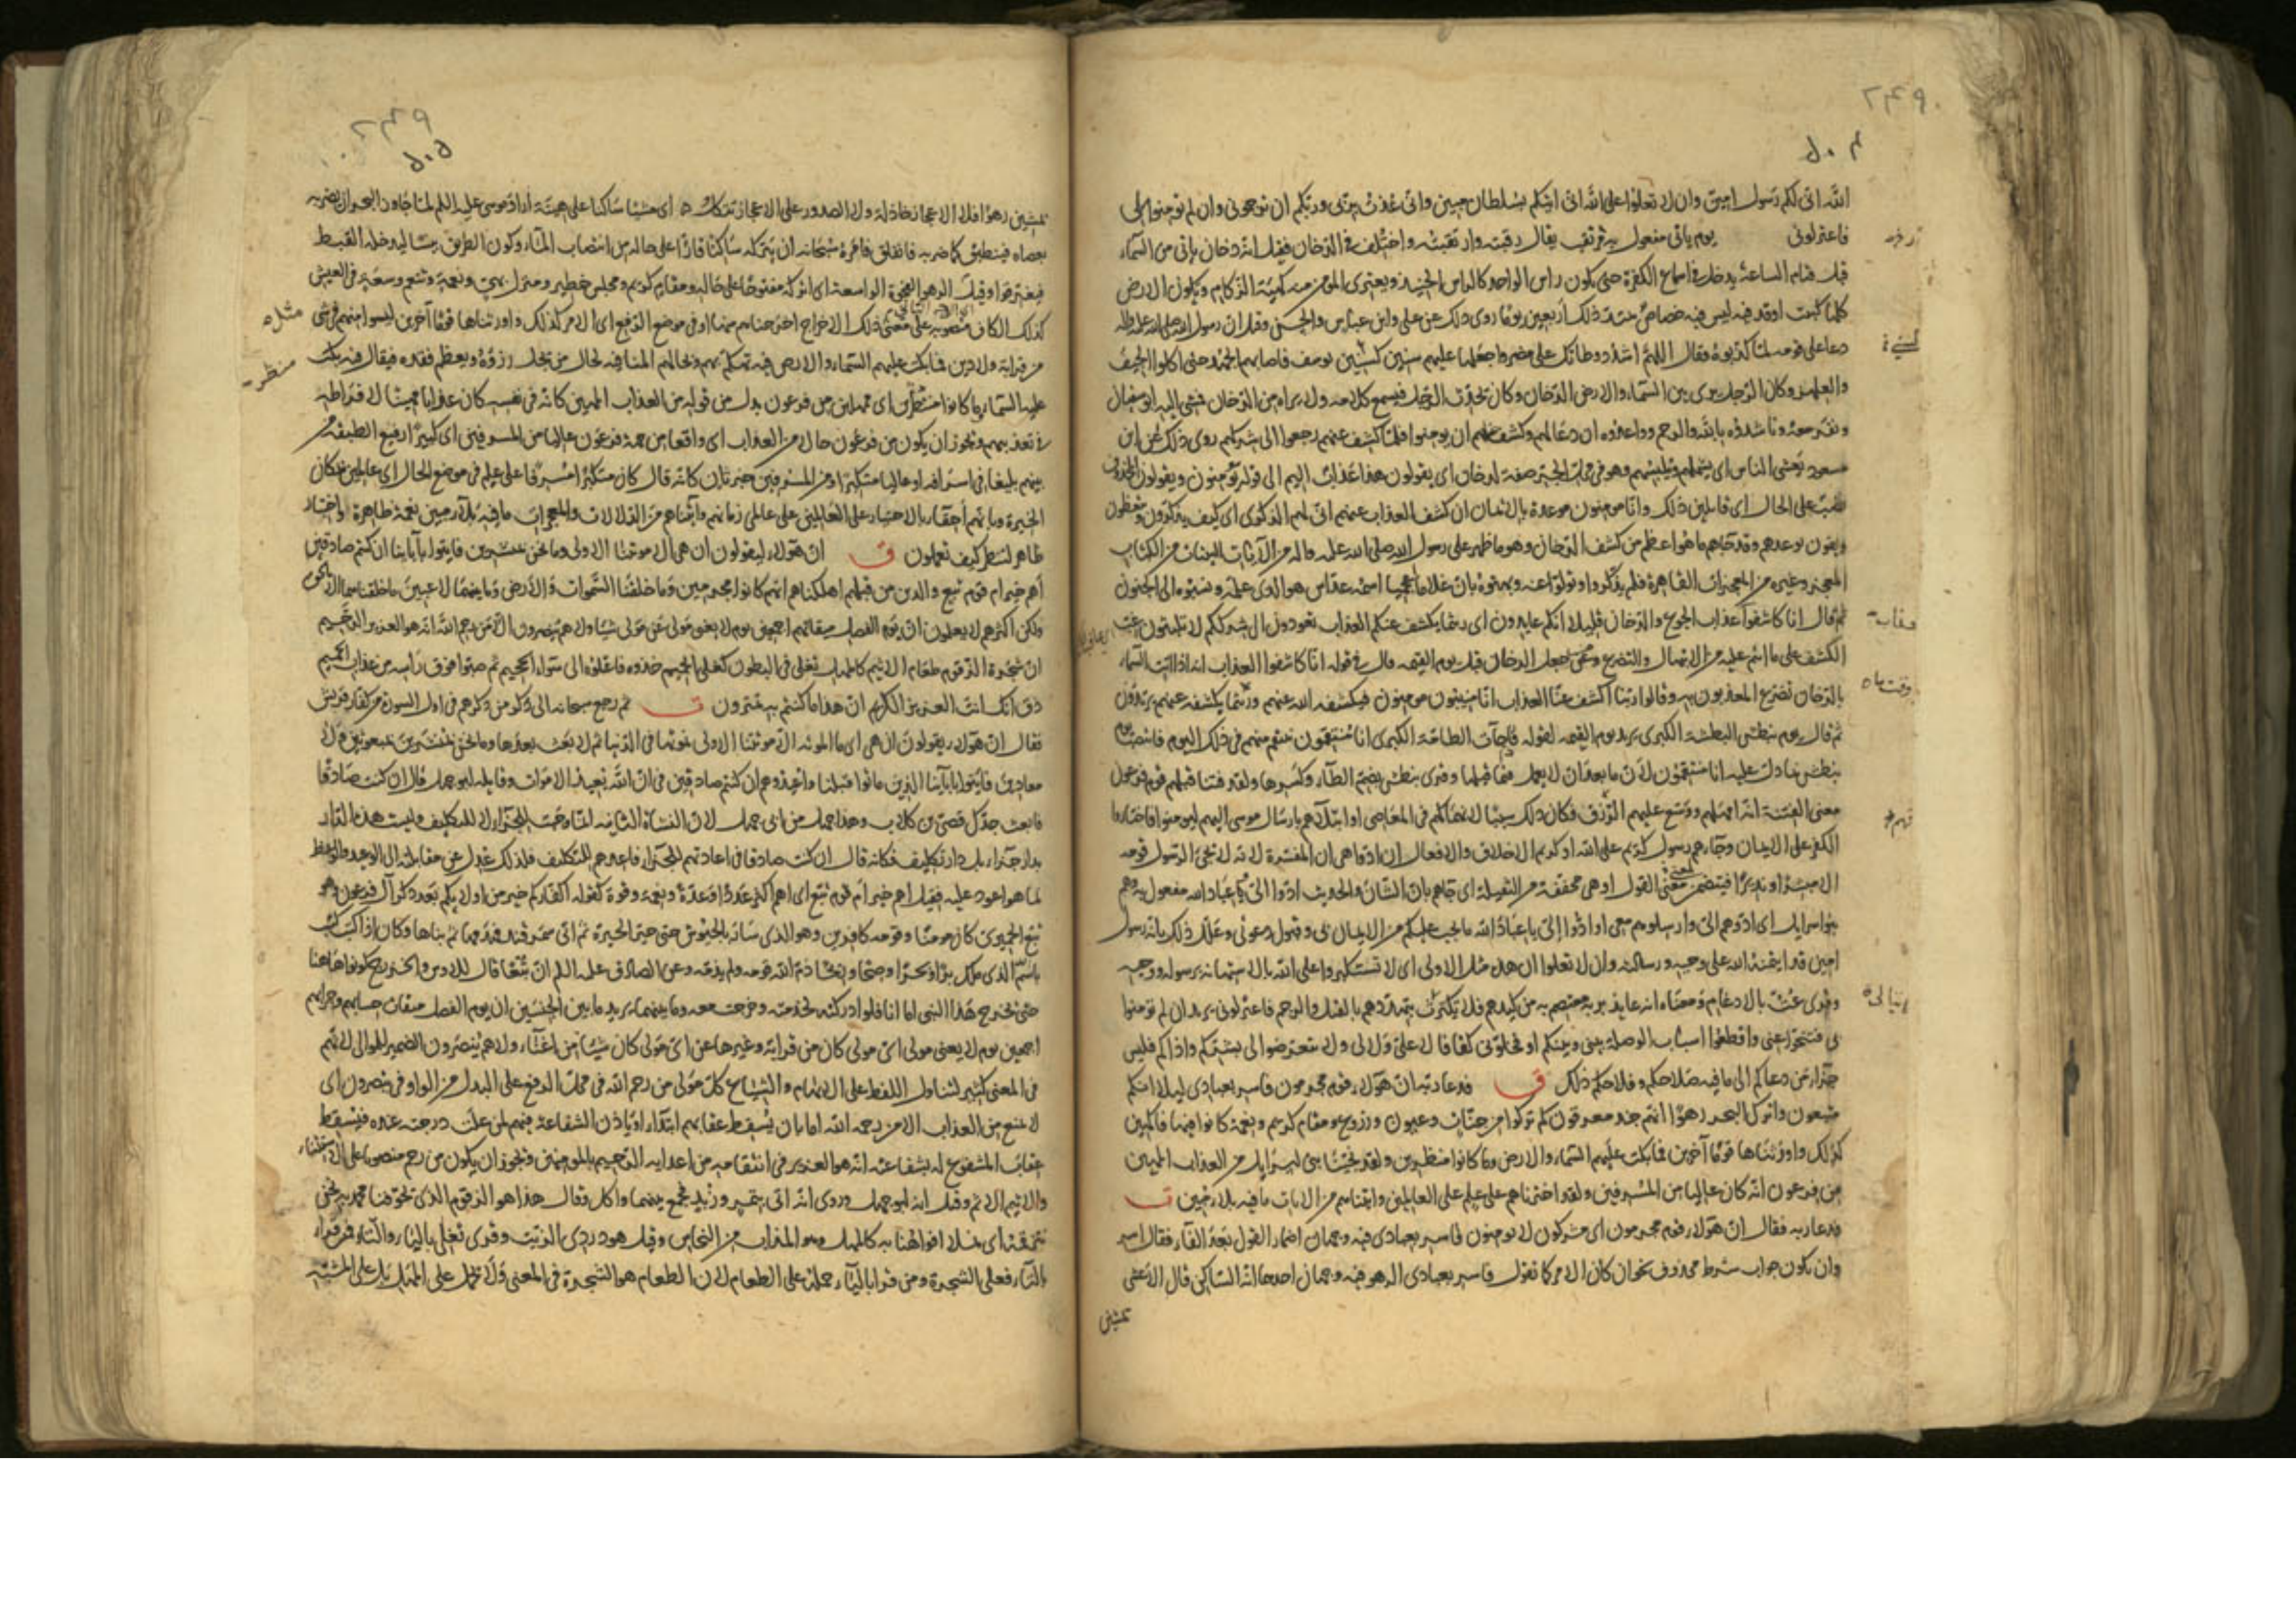 ۲۴۹
۵۰۴
الله انى لكم رسول امين وان لا تعلوا على الله انى آتيكم بسلطان مبين وانى عذت بربى وربكم ان ترجمون وان لم تؤمنوا لى
فاعتزلون يوم ياتى مفعول به فارتقب يقال رقبته وارتقبته واختلف فى الدخان فقيل انه دخان ياتى من السماء
قبل قيام الساعة يدخل فى اسماع الكفرة حتى يكون راس الواحد كالراس الحنيذ ويعترى المؤمن منه كهيئة الزكام وتكون الارض
كلها كبيت اوقد فيه ليس فيه خصاص يمتد ذلك اربعين يوما روى ذلك عن على وابن عباس والحسن وقيل ان رسول الله صلى الله عليه واله
دعا على قومه لما كذبوه فقال اللهم اشدد وطاتك على مضر واجعلها عليهم سنين كسنى يوسف فاصابهم الجهد حتى اكلوا الجيف
والعلهز وكان الرجل يرى بين السماء والارض الدخان وكان يحدث الرجل فيسمع كلامه ولا يراه من الدخان فمشى اليه ابو سفيان
ونفر معه وناشدوه بالله والرحم وواعدوه ان دعا لهم وكشف عنهم ان يؤمنوا فلما كشف عنهم رجعوا الى شركهم روى ذلك عن ابن
مسعود يغشى الناس اى يشملهم ويلبسهم وهو فى محل الجر صفة لدخان اى يقولون هذا عذاب اليم الى قوله مؤمنون ويقولون
نصب على الحال اى قايلين ذلك وانا مومنون موعدة بالايمان ان كشف العذاب عنهم انى لهم الذكرى اى كيف يذكرون ويتعظون
ويفون بوعدهم وقد جاءهم ما هو اعظم من كشف الدخان وهو ما ظهر على رسول الله صلى الله عليه واله من الآيات البينات من الكتاب
المعجز وغيره من المعجزات القاهرة فلم يذكروا وتولوا عنه وبهتوه بان غلاما اعجميا اسمه عداس هو الذى علمه ونسبوه الى الجنون
ثم قال انا كاشفوا عذاب الجوع والدخان قليلا انكم عايدون اى ريثما يكشف عنكم العذاب تعودون الى شرككم لا تلبثون غب
الكشف على ما انتم عليه من الابتهال والتضرع ومن جعل الدخان قبل يوم القيمه قال فى قوله انا كاشفوا العذاب انه اذا اتت السماء
بالدخان تضرع المعذبون به وقالوا ربنا اكشف عنا العذاب انا منيبون مومنون فيكشفه الله عنهم وريثما يكشفه عنهم يرتدون
ثم قال يوم نبطش البطشة الكبرى يريد يوم القيمه لقوله فاذا جاءت الطامة الكبرى انا منتقمون ننتقم منهم فى ذلك اليوم فانتصب يوم
بنبطش بما دل عليه انا منتقمون لان ما بعد ان لا يعمل فيما قبلها وقرئ نبطش بضم الطاء وكسرها ولقد فتنا قبلهم قوم فرعون
معنى الفتنة انه امهلهم ووسع عليهم الرزق فكان ذلك سببا لانهماكهم فى المعاصى او ابتلاهم بارسال موسى اليهم ليومنوا فاختاروا
الكفر على الايمان وجاءهم رسول كريم على الله او كريم الاخلاق والافعال ان ادوا هى ان المفسرة لانه لا يجئ الرسول قومه
الا مبشرا ونذيرا فيتضمن معنى القول او هى مخففة من الثقيلة اى جاءهم بان الشان والحديث ادوا الى عباد الله مفعول به وهم
بنو اسرايل اى ادوهم الى وارسلوهم معى او ادوا الى يا عباد الله ما يجب عليكم من الايمان لى وقبول دعوتى وعلل ذلك بانه رسول
امين قد ايتمنه الله على وحيه ورسالته وان لا تعلوا ان هذه مثل الاولى اى لا تستكبروا على الله بالاستهانة برسوله ووحيه
وقرئ عت بالادغام ومعناه انه عايذ بربه معتصم به من كيدهم فلا يكترث بتهددهم بالقتل والرجم فاعتزلون يريد ان لم تومنوا
لى فتنحوا عنى واقطعوا اسباب الوصلة بينى وبينكم او فخلونى كفافا لا على ولا لى ولا تتعرضوا لى بشركم واذاكم فليس
جزاء من دعاكم الى ما فيه صلاحكم وفلاحكم ذلك ق فدعا ربه ان هؤلاء قوم مجرمون فاسر بعبادى ليلا انكم
متبعون واترك البحر رهوا انهم جند مغرقون كم تركوا من جنات وعيون وزروع ومقام كريم ونعمة كانوا فيها فاكهين
كذلك واورثناها قوما آخرين فما بكت عليهم السماء والارض وما كانوا منظرين ولقد نجينا بنى اسرايل من العذاب المهين
من فرعون انه كان عاليا من المسرفين ولقد اخترناهم على علم على العالمين وآتيناهم من الآيات ما فيه بلاء مبين ت
فدعا ربه فقال ان هؤلاء قوم مجرمون اى مشركون لا يومنون فاسر بعبادى فيه وجهان اضمار القول بعد الفاء فقال اسر
وان يكون جواب شرط محذوف نحو ان كان الامر كما تقول فاسر بعبادى الرهو فيه وجهان احدهما انه الساكن قال الاعشى
يمشين
۲۴۹
۵۰۵
يمشين رهوا فلا الاعجاز خاذلة ولا الصدور على الاعجاز تتكل اى مشيا ساكنا على هينة اراد موسى عليه السلم لما جاوز البحر ان يضربه
بعصاه فينطبق كما ضربه فانفلق فامره سبحانه ان يتركه ساكنا قارا على حاله من انتصاب الماء وكون الطريق يبسا ليدخله القبط
فيغترقوا وقيل الرهو الفجوة الواسعة اى اتركه مفتوحا على حاله ومقام كريم ومجلس خطير ومنزل بهى ونعمة وتنعم وسعة فى العيش
كذلك الكاف منصوبة على معنى ذلك الاخراج اخرجناهم منها او فى موضع الرفع اى الامر كذلك واورثناها قوما آخرين ليسوا منهم فى شئ
من قرابة ولا دين فما بكت عليهم السماء والارض فيه تهكم بهم وبحالهم المنافيه لحال من يجل رزؤه ويعظم فقده فيقال فيه بكت
عليه السماء وما كانوا منظرين اى ممهلين من فرعون بدل من قوله من العذاب المهين كانه فى نفسه كان عذابا مهينا لافراطه
فى تعذيبهم ويجوز ان يكون من فرعون حالا من العذاب اى واقعا من جهة فرعون عاليا من المسرفين اى كبيرا رفيع الطبقة من
بينهم بليغا فى اسرافه او عاليا متكبرا ومن المسرفين خبر ثان كانه قال كان متكبرا مسرفا على علم فى موضع الحال اى عالمين بمكان
الخيرة وبانهم احقاء بالاختيار على العالمين على عالمى زمانهم وآتيناهم من الدلالات والمعجزات ما فيه بلاء مبين نعمة ظاهرة او اختبار
ظاهر لننظر كيف تعملون ق ان هؤلاء ليقولون ان هى الا موتتنا الاولى وما نحن بمنشرين فاتوا بآبائنا ان كنتم صادقين
اهم خير ام قوم تبع والذين من قبلهم اهلكناهم انهم كانوا مجرمين وما خلقنا السموات والارض وما بينهما لاعبين ما خلقناهما الا بالحق
ولكن اكثرهم لا يعلمون ان يوم الفصل ميقاتهم اجمعين يوم لا يغنى مولى عن مولى شيئا ولا هم ينصرون الا من رحم الله انه هو العزيز الرحيم
ان شجرة الزقوم طعام الاثيم كالمهل تغلى فى البطون كغلى الحميم خذوه فاعتلوه الى سواء الجحيم ثم صبوا فوق راسه من عذاب الحميم
ذق انك انت العزيز الكريم ان هذا ما كنتم به تمترون ت ثم رجع سبحانه الى ذكر من ذكرهم فى اول السورة من كفار قريش
فقال ان هؤلاء يقولون ان هى اى ما الموتة الا موتتنا الاولى نموتها فى الدنيا ثم لا بعث بعدها وما نحن بمنشرين بمبعوثين ولا
معادين فاتوا بآبائنا الذين ماتوا قبلنا واعيدوهم ان كنتم صادقين فى ان الله يعيد الاموات وقايله ابو جهل قال ان كنت صادقا
فابعث جدك قصى بن كلاب وهذا جهل من ابى جهل لان النشاة الثانية انما وجبت للجزاء لا للتكليف وليست هذه الدار
بدار جزاء بل دار تكليف فكانه قال ان كنت صادقا فى اعادتهم للجزاء فاعدهم للتكليف فلذلك عدل عن مقابلته الى الوعيد والوعظ
لما هو اعود عليه فقيل اهم خير ام قوم تبع اى اهم اكثر عددا وعدة ونعمة وقوة كقوله اكفاركم خير من اولئكم بعد ذكر آل فرعون وهو
تبع الحميرى كان مومنا وقومه كافرين وهو الذى سار بالجيوش حتى حير الحيرة ثم اتى سمرقند فهدمها ثم بناها وكان اذا كتب كتب
باسم الذى ملك برا وبحرا وضحا وريحا ذم الله قومه ولم يذمه وعن الصادق عليه السلم ان تبعا قال للاوس والخزرج كونوا هاهنا
حتى يخرج هذا النبى اما انا فلو ادركته لخدمته وخرجت معه وما بينهما يريد ما بين الجنسين ان يوم الفصل ميقات حسابهم وجزايهم
اجمعين يوم لا يغنى مولى اى مولى كان من قرابة وغيرها عن اى مولى كان شيئا من اغناء ولا هم ينصرون الضمير للموالى لانهم
فى المعنى كثير لتناول اللفظ على الابهام والشياع كل مولى من رحم الله فى محل الرفع على البدل من الواو فى ينصرون اى
لا يمنع من العذاب الا من يرحمه الله اما بان يسقط عقابهم ابتداء او ياذن الشفاعة فيهم لمن علت درجته عنده فيسقط
عقاب المشفوع له بشفاعته انه هو العزيز فى انتقامه من اعدايه الرحيم بالمومنين ويجوز ان يكون من رحم منصوبا على الاستثناء
والاثيم الآثم وقيل انه ابو جهل وروى انه اتى بتمر وزبد فجمع بينهما واكل وقال هذا هو الزقوم الذى يخوفنا محمد به نحن
نتزقمه اى نملأ افواهنا به كالمهل وهو المذاب من النحاس وقيل هو دردى الزيت وقرئ تغلى بالياء والتاء فمن قرا
بالتاء فعلى الشجرة ومن قرا بالياء حمله على الطعام لان الطعام هو الشجرة فى المعنى ولا يحمل على المهل بل على المشبه